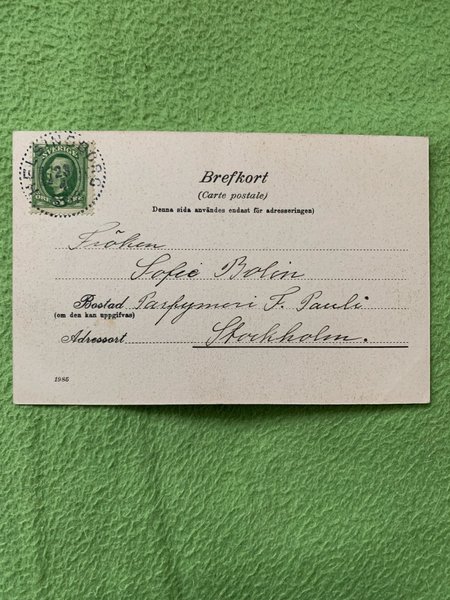 HELSINGBORG
SVERIGE
ÖRE 5 ÖRE
Brefkort
(Carte postale)
Denna sida användes endast för adresseringen)
Fröken
Sofie Bolin
Bostad Parfymeri F. Pauli
(om den kan uppgifvas)
Adressort Stockholm.
1985